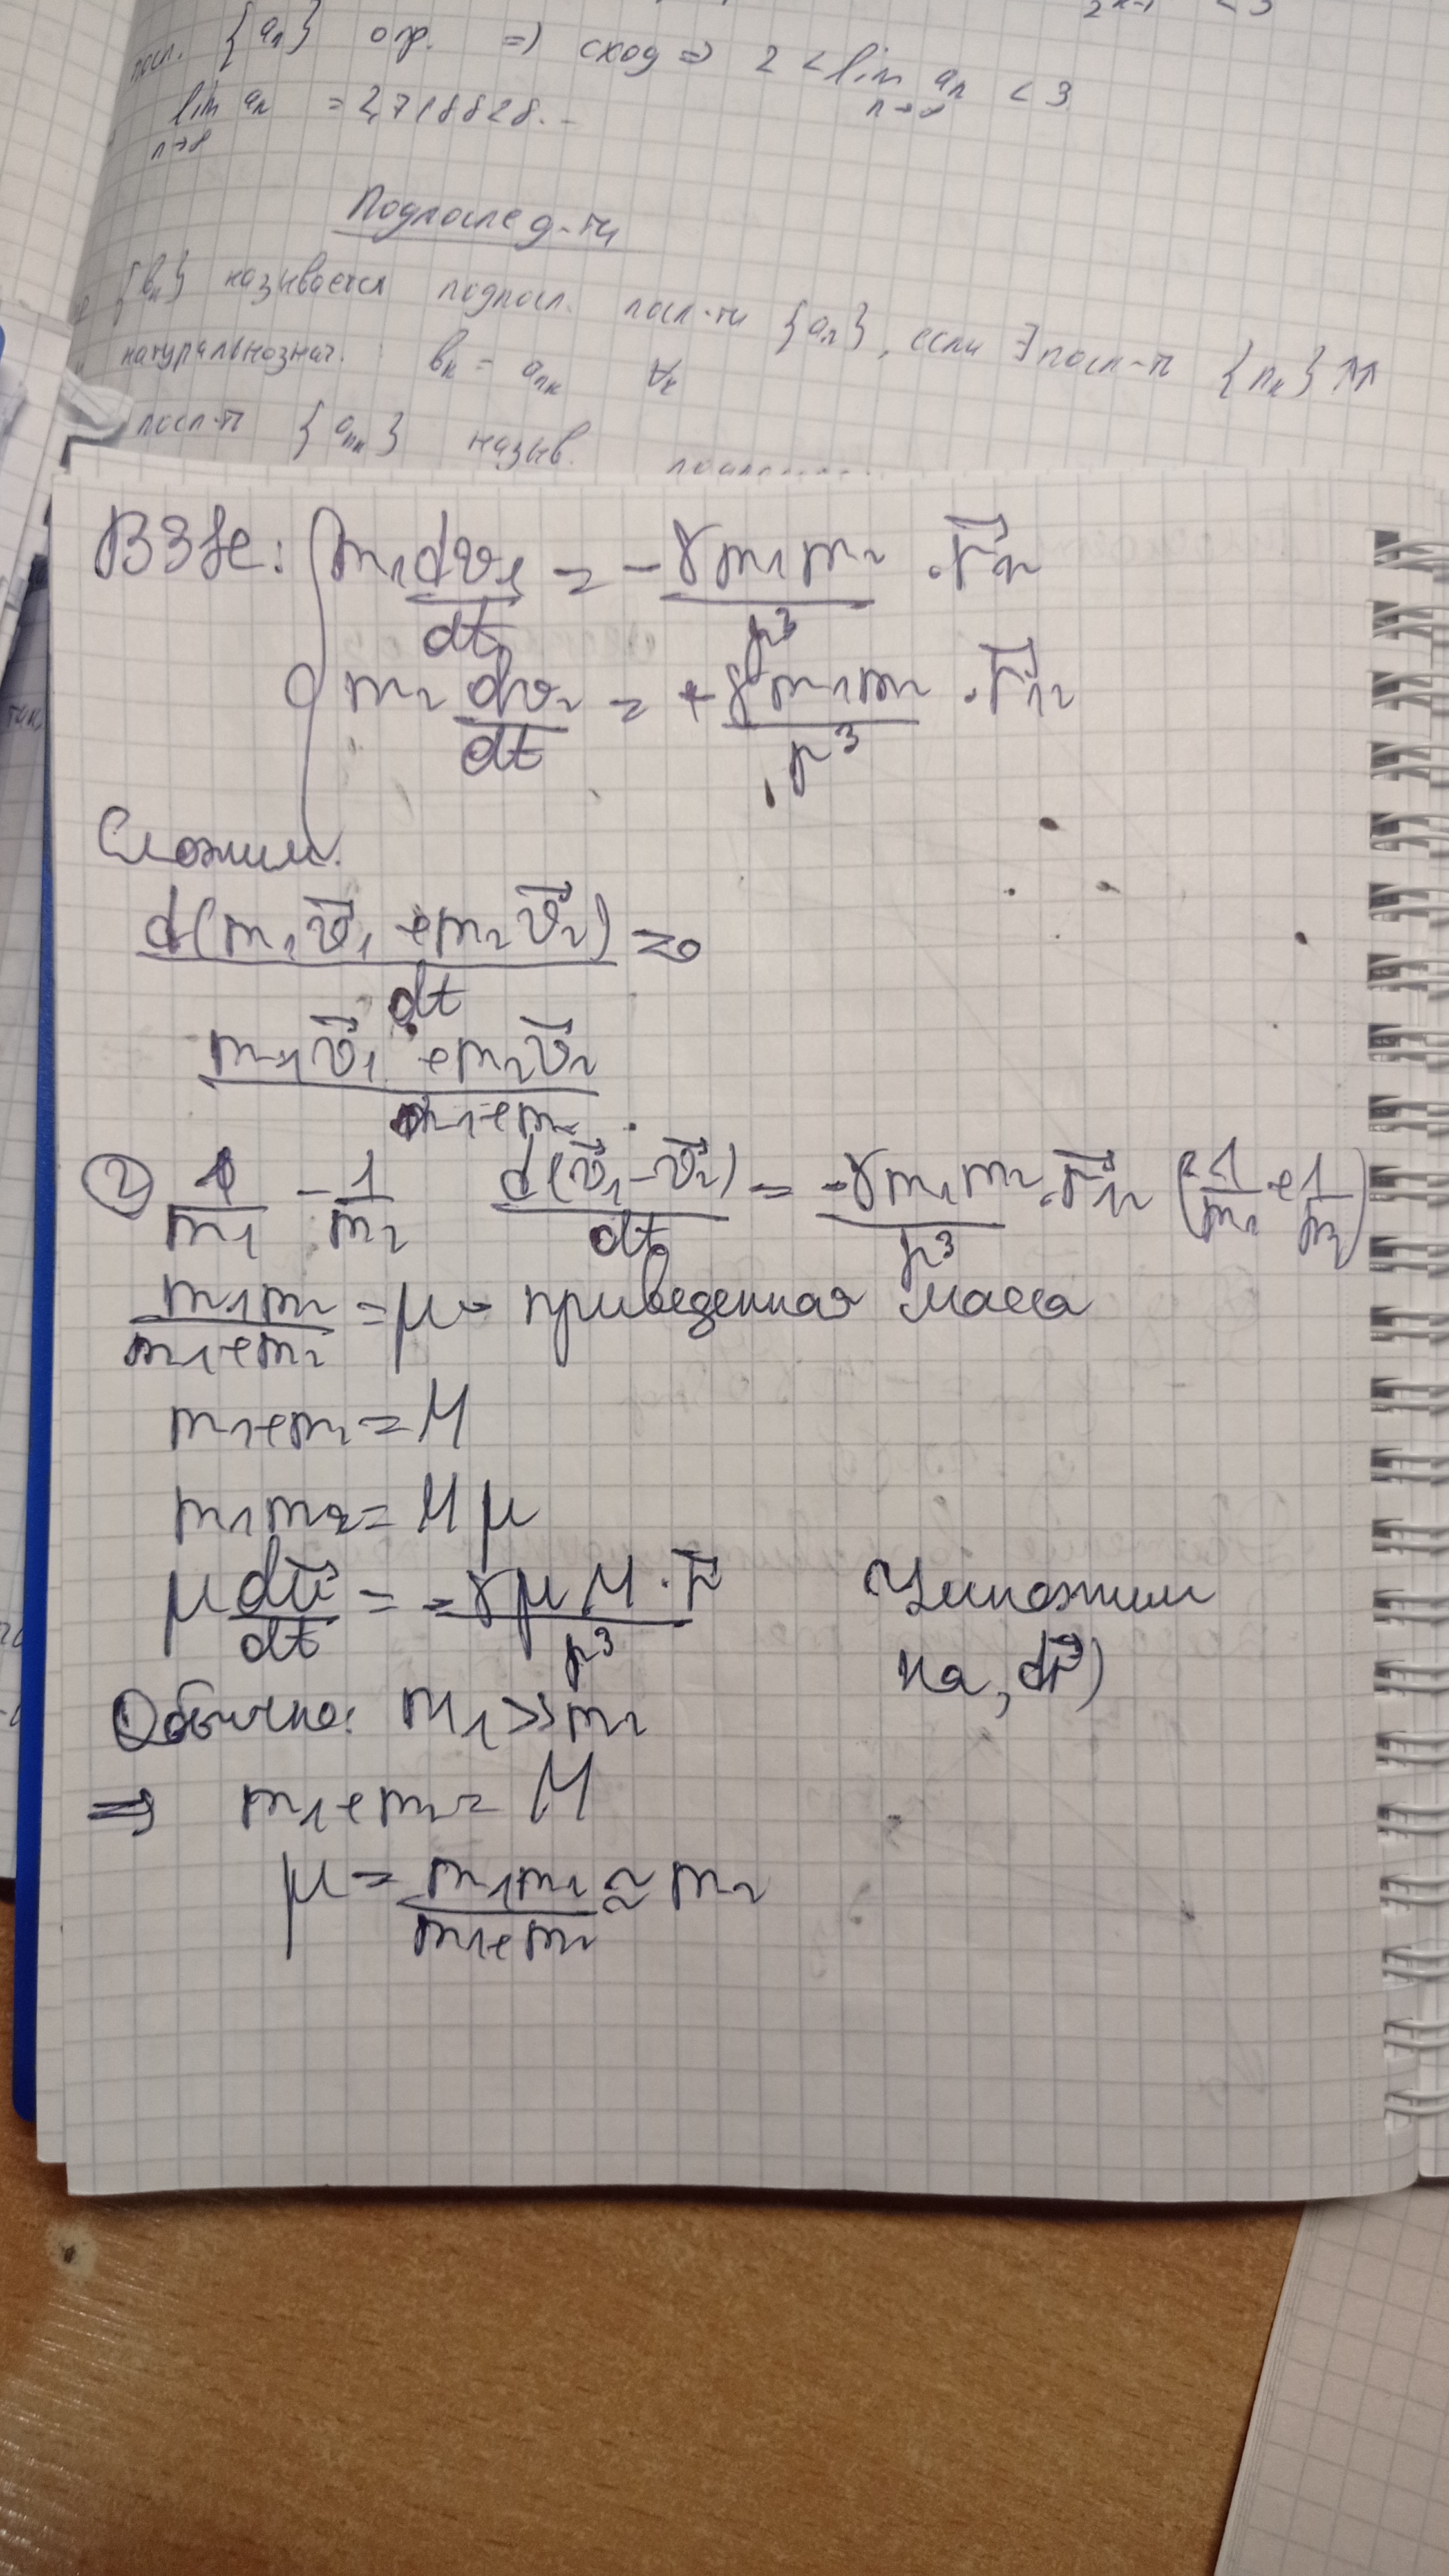 2ⁿ⁻¹ < 3
посл. {aₙ} огр. ⇒ сход ⇒ 2 < lim aₙ < 3
n→∞
lim aₙ = 2,718828...
n→∞
Подпослед-ти
{bₙ} называется подпосл. посл-ти {aₙ}, если ∃ посл-ть {nₖ} ↑↑
натуральнознач. : bₖ = aₙₖ ∀ₖ
посл-ть {aₙₖ} назыв.
ВЗЭС: { m₁dv₁/dt = -γm₁m₂/r³ · r⃗₁₂
m₂ dv₂/dt = +γm₁m₂/r³ · r⃗₁₂
Сложим.
d(m₁v⃗₁ + m₂v⃗₂)/dt = 0
m₁v⃗₁ + m₂v⃗₂ / m₁+m₂
② 1/m₁ - 1/m₂ d(v⃗₁-v⃗₂)/dt = -γm₁m₂/r³ · r⃗₁₂ (1/m₁ + 1/m₂)
m₁m₂/m₁+m₂ = μ - приведенная масса
m₁+m₂ = M
m₁m₂ = Mμ
μ du⃗/dt = -γμM · r⃗/r³ Умножим
на, dr⃗)
Обычно: m₁ >> m₂
⇒ m₁+m₂ = M
μ = m₁m₂/m₁+m₂ ≈ m₂